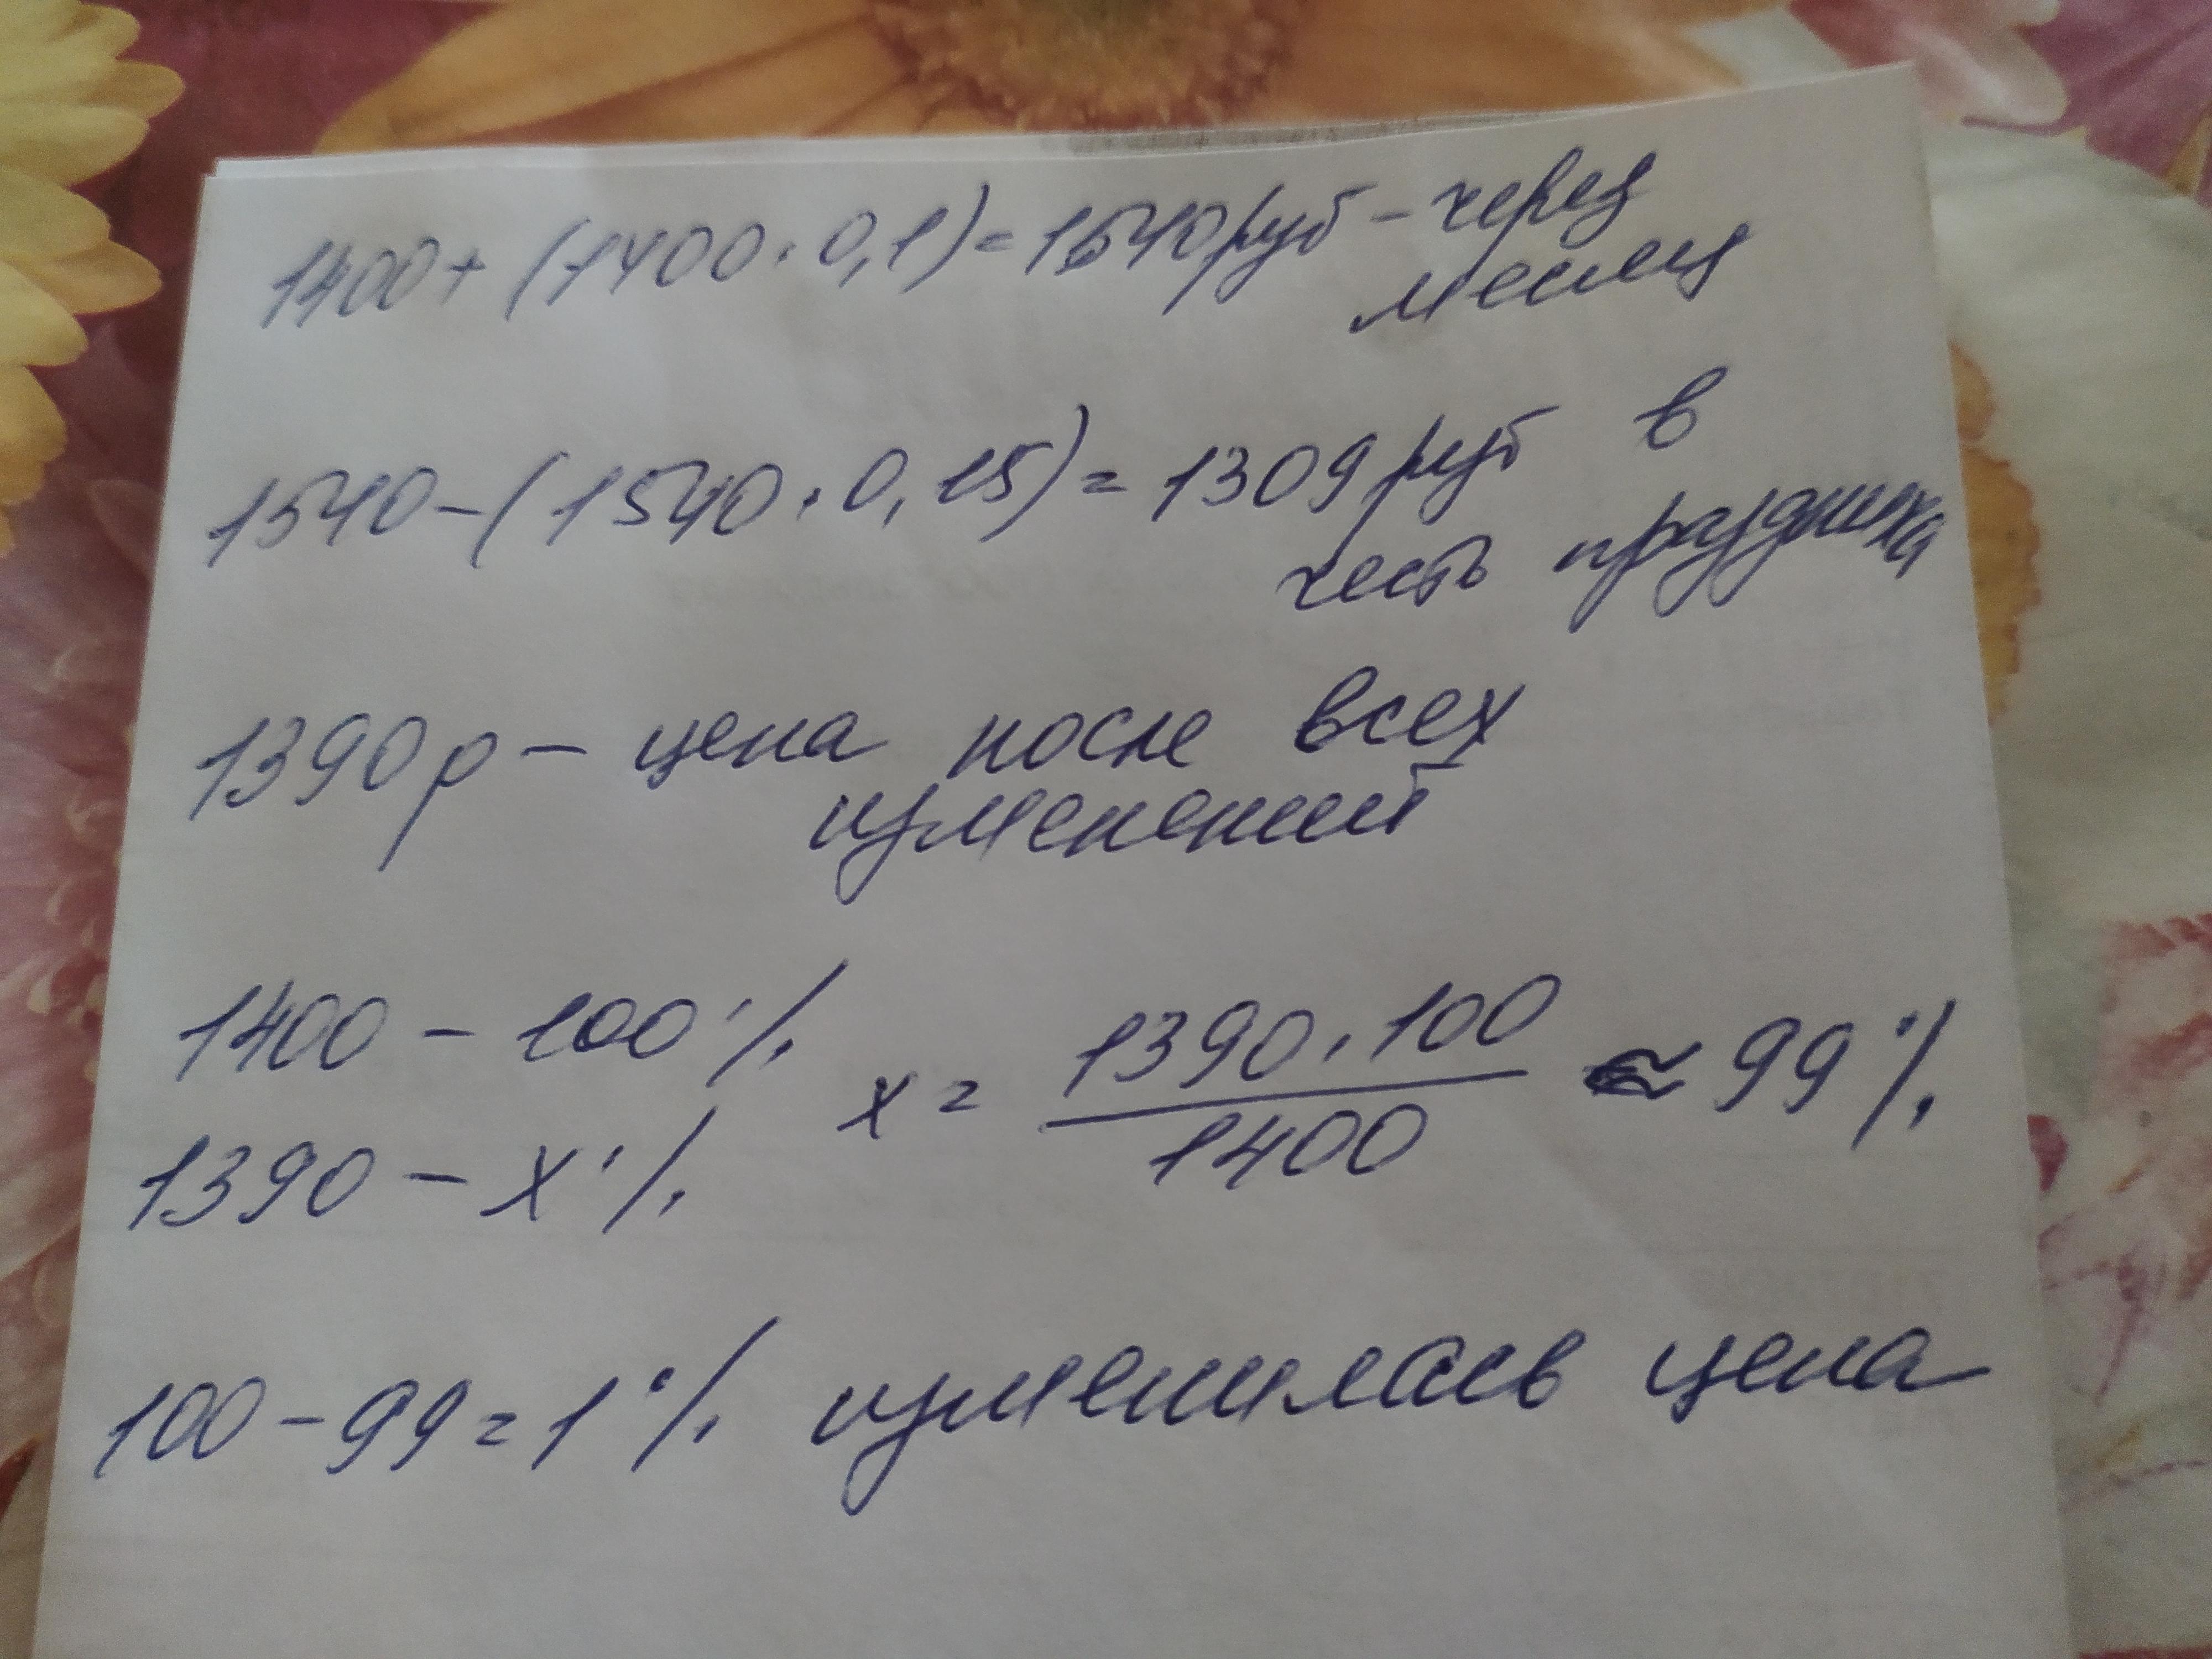 1400+(1400·0,1)=1540руб-через
месяц
1540-(1540·0,15)=1309руб в
честь праздника
1390р-цена после всех
изменений
1400-100%
x=1390·100/1400≈99%
1390-x%
100-99=1% изменилась цена